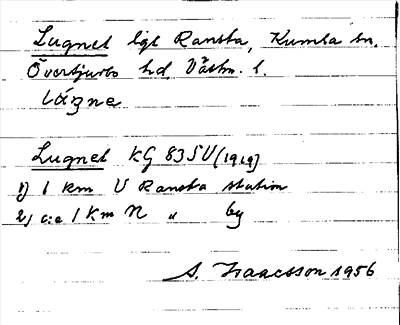 Lugnet lgt Ransta, Kumla sn.
Övertjurbo hd, Västm. l.
Lugnet KG 83SV (1919)
1) 1 km V Ransta station
2) c:a 1 km N " by
S. Isaacsson 1956